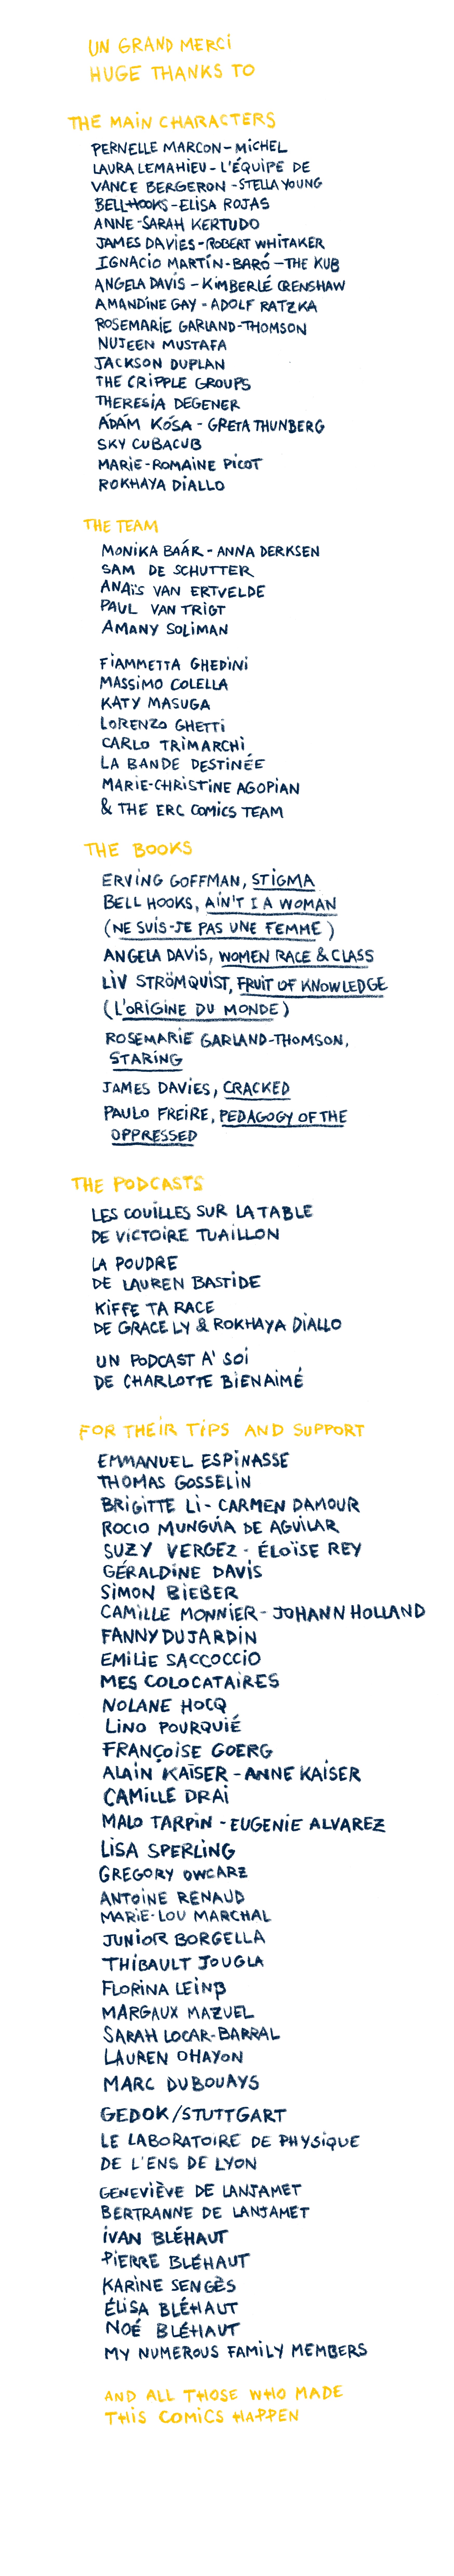 UN GRAND MERCI
HUGE THANKS TO
THE MAIN CHARACTERS
PERNELLE MARCON - MICHEL
LAURA LEMAHIEU - L'ÉQUIPE DE
VANCE BERGERON - STELLA YOUNG
BELL HOOKS - ELISA ROJAS
ANNE-SARAH KERTUDO
JAMES DAVIES - ROBERT WHITAKER
IGNACIO MARTÍN-BARÓ - THE KUB
ANGELA DAVIS - KIMBERLÉ CRENSHAW
AMANDINE GAY - ADOLF RATZKA
ROSEMARIE GARLAND-THOMSON
NUJEEN MUSTAFA
JACKSON DUPLAN
THE CRIPPLE GROUPS
THERESIA DEGENER
ÁDÁM KÓSA - GRETA THUNBERG
SKY CUBACUB
MARIE-ROMAINE PICOT
ROKHAYA DIALLO
THE TEAM
MONIKA BAÁR - ANNA DERKSEN
SAM DE SCHUTTER
ANAÏS VAN ERTVELDE
PAUL VAN TRIGT
AMANY SOLIMAN
FIAMMETTA GHEDINI
MASSIMO COLELLA
KATY MASUGA
LORENZO GHETTI
CARLO TRIMARCHI
LA BANDE DESTINÉE
MARIE-CHRISTINE AGOPIAN
& THE ERC COMICS TEAM
THE BOOKS
ERVING GOFFMAN, STIGMA
BELL HOOKS, AIN'T I A WOMAN
(NE SUIS-JE PAS UNE FEMME)
ANGELA DAVIS, WOMEN RACE & CLASS
LIV STRÖMQUIST, FRUIT OF KNOWLEDGE
(L'ORIGINE DU MONDE)
ROSEMARIE GARLAND-THOMSON,
STARING
JAMES DAVIES, CRACKED
PAULO FREIRE, PEDAGOGY OF THE
OPPRESSED
THE PODCASTS
LES COUILLES SUR LA TABLE
DE VICTOIRE TUAILLON
LA POUDRE
DE LAUREN BASTIDE
KIFFE TA RACE
DE GRACE LY & ROKHAYA DIALLO
UN PODCAST A' SOI
DE CHARLOTTE BIENAIMÉ
FOR THEIR TIPS AND SUPPORT
EMMANUEL ESPINASSE
THOMAS GOSSELIN
BRIGITTE LI - CARMEN DAMOUR
ROCIO MUNGUÍA DE AGUILAR
SUZY VERGEZ - ÉLOÏSE REY
GÉRALDINE DAVIS
SIMON BIEBER
CAMILLE MONNIER - JOHANN HOLLAND
FANNY DUJARDIN
EMILIE SACCOCCIO
MES COLOCATAIRES
NOLANE HOCQ
LINO POURQUIÉ
FRANÇOISE GOERG
ALAIN KAISER - ANNE KAISER
CAMILLE DRAI
MALO TARPIN - EUGENIE ALVAREZ
LISA SPERLING
GREGORY OWCARZ
ANTOINE RENAUD
MARIE-LOU MARCHAL
JUNIOR BORGELLA
THIBAULT JOUGLA
FLORINA LEINß
MARGAUX MAZUEL
SARAH LOCAR-BARRAL
LAUREN OHAYON
MARC DUBOUAYS
GEDOK/STUTTGART
LE LABORATOIRE DE PHYSIQUE
DE L'ENS DE LYON
GENEVIÈVE DE LANJAMET
BERTRANNE DE LANJAMET
IVAN BLÉHAUT
PIERRE BLÉHAUT
KARINE SENGÈS
ÉLISA BLÉHAUT
NOÉ BLÉHAUT
MY NUMEROUS FAMILY MEMBERS
AND ALL THOSE WHO MADE
THIS COMICS HAPPEN